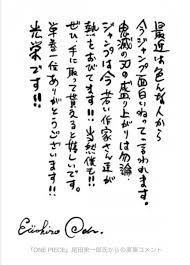 最近は色んな人から
今ジャンプ面白いねって言われます。
鬼滅の刃の盛り上がりは勿論
ジャンプは今若い作家さん達が
熱をおびてます!! 当然僕も!!
ぜひ、手に取って貰えると嬉しいです。
栄誉一位ありがとうございます!!
光栄です!!
Eiichiro Oda.
『ONE PIECE』尾田栄一郎氏からの直筆コメント